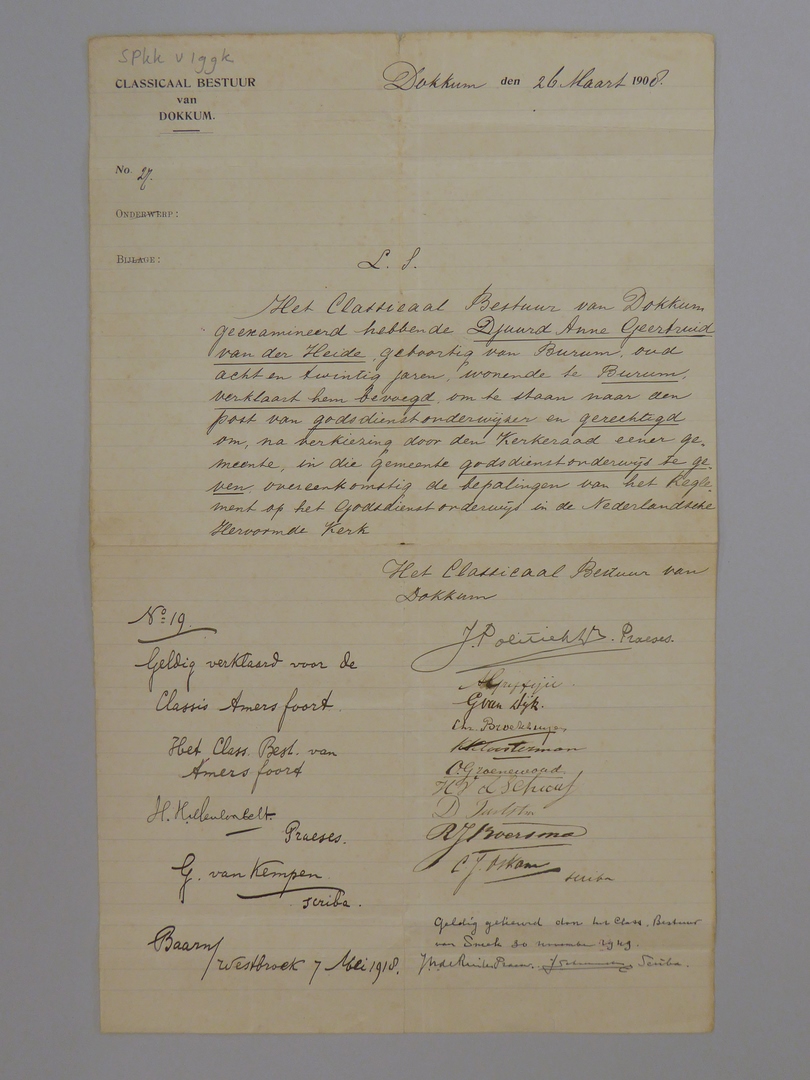 SPKK V199k
CLASSICAAL BESTUUR
van
DOKKUM.
Dokkum den 26 Maart 1908.
No. 27.
ONDERWERP:
BIJLAGE:
L. S.
Het Classicaal Bestuur van Dokkum
geexamineerd hebbende Djuurd Anne Geertruid
van der Heide, geboortig van Burum, oud
acht en twintig jaren, wonende te Burum,
verklaart hem bevoegd, om te staan naar den
post van godsdienstonderwijzer en gerechtigd
om, na verkiezing door den Kerkeraad eener ge-
meente, in die gemeente godsdienstonderwijs te ge-
ven overeenkomstig de bepalingen van het Regle-
ment op het Godsdienstonderwijs in de Nederlandsche
Hervormde Kerk
Het Classicaal Bestuur van
Dokkum
J. Politiek Praeses.
G van Dijk.
K Kloosterman
C. Groenewoud
D
RJ Boersma
C J. Askam
scriba
No. 19.
Geldig verklaard voor de
Classis Amersfoort.
Het Class. Best. van
Amersfoort
H.
Praeses.
G. van Kempen.
scriba.
Baarn/
Westbroek 7 Mei 1918.
Geldig gekeurd door het Class. Bestuur
van Sneek 20 november 1929.
Praes. Scriba.